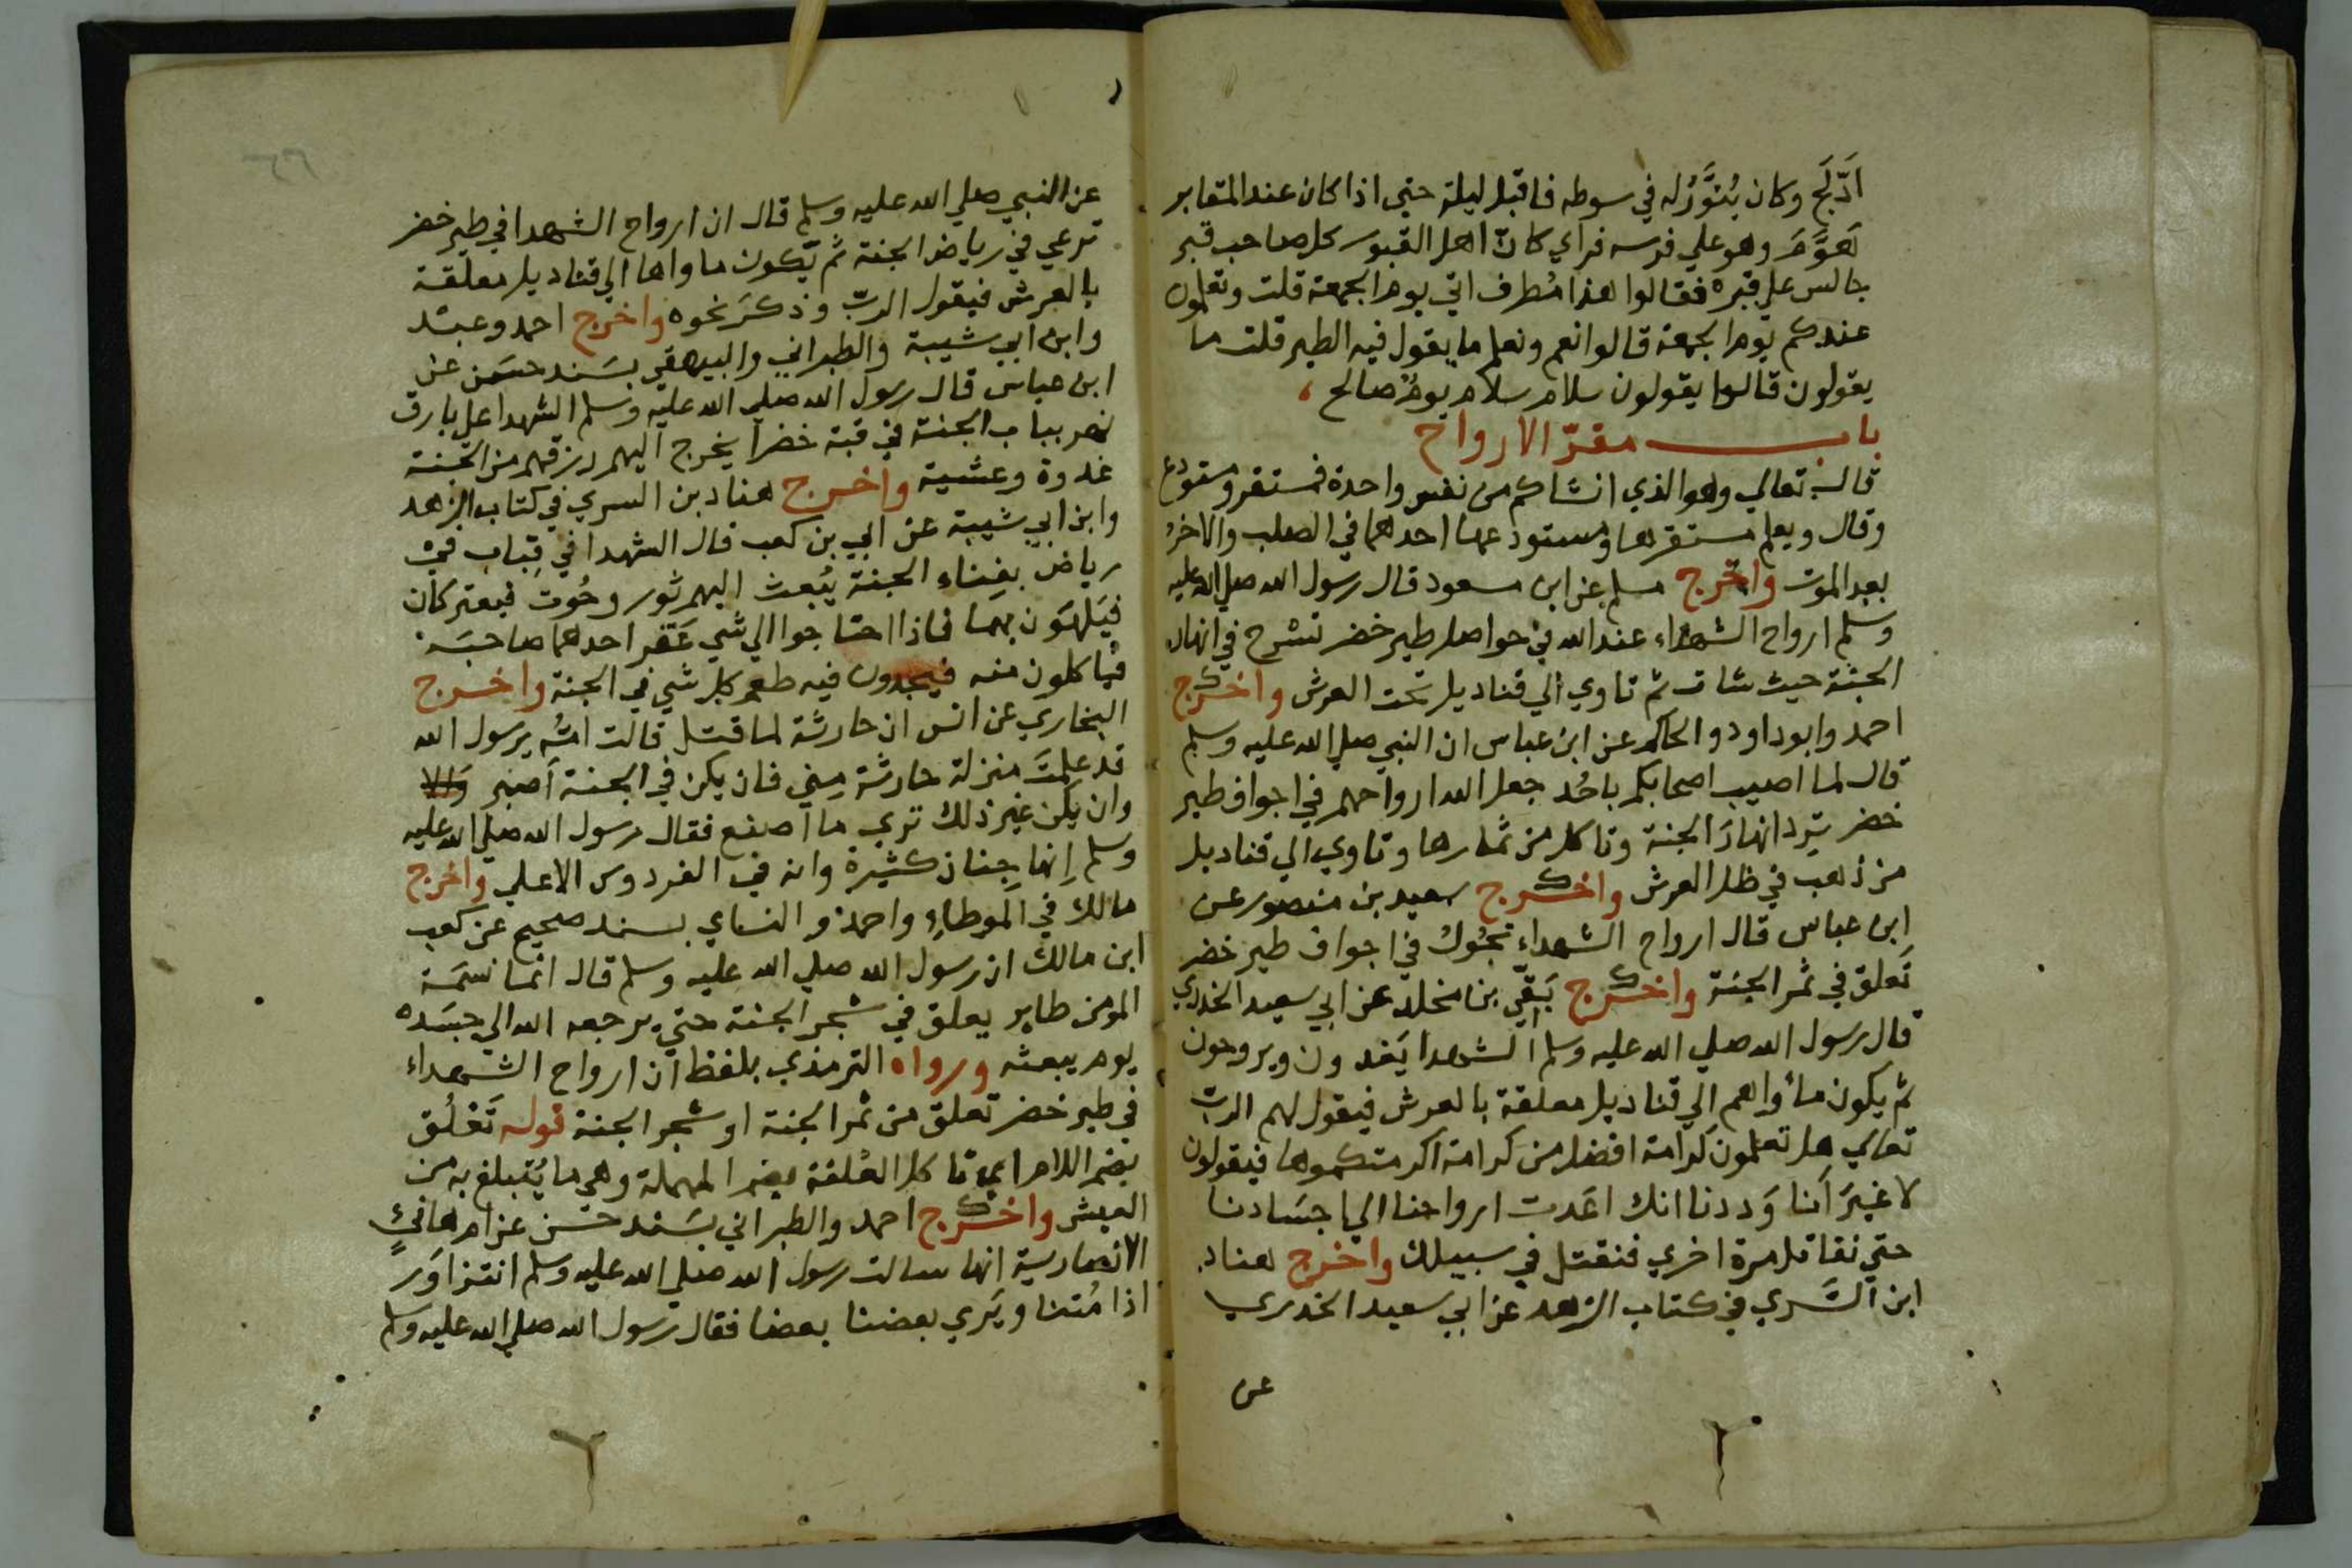 اَدّلَج وكان يُنوَّرُ له في سوطه فاقبل ليلة حتي اذا كان عند المقابر
هَوَّمَ وهو علي فرسه فراي كانّ اهل القبور كل صاحب قبر
جالس علي قبره فقالوا هذا مُطرف اتي يوم الجمعة قلت وتعلمون
عندكم يوم الجمعة قالوا نعم ونعلم ما يقول فيه الطير قلت ما
يقولون قالوا يقولون سلام سلام يومٌ صالح
باب مقرّ الارواح
قال تعالي وهو الذي انشاكم من نفس واحدة فمستقر ومستودع
وقال ويعلم مستقرها ومستودعها احدهما في الصلب والاخرُ
بعد الموت واخرج مسلم عن ابن مسعود قال رسول الله صلي الله عليه
وسلم ارواح الشهداء عند الله في حواصل طير خضر تسرح في انهار
الجنة حيث شات ثم تاوي الي قناديل تحت العرش واخرج
احمد وابوداود والحاكم عن ابن عباس ان النبي صلي الله عليه وسلم
قال لما اصيب اصحابكم باحُد جعل الله ارواحهم في اجواف طير
خضر تَرِد انهارَ الجنة وتاكل من ثمارها وتاوي الي قناديل
من ذهب في ظل العرش واخرج سعيد بن منصور عن
ابن عباس قال ارواح الشهداء تجُولُ في اجواف طير خضر
تَعلق في ثمر الجنة واخرج بَقّي بن مخلد عن ابي سعيد الخدري
قال رسول الله صلي الله عليه وسلم الشهدا يَغدون ويروحون
ثم يكون مأواهم الي قناديل معلقة بالعرش فيقول لهم الربّ
تعالي هل تعلمون كرامة افضل من كرامة اكرمتكموها فيقولون
لا غيرَ اَنا وَددنا انك اعَدت ارواحنا الي اجسَادنا
حتي نقاتل مرة اخري فنقتل في سبيلك واخرج هناد
ابن السَّري في كتاب الزهد عن ابي سعيد الخدري
عن
٦٦
عن النبي صلي الله عليه وسلم قال ان ارواح الشهدا في طير خضر
ترعي في رياض الجنة ثم يكون ماواها الي قناديل معلقة
بالعرش فيقول الربّ وذكرَ نحوه واخرج احمد وعبد
وابن ابي شيبة والطبراني والبيهقي بسَند حسَن عن
ابن عباس قال رسول الله صلي الله عليه وسلم الشهدا علي بارق
نهر بباب الجنة في قبة خضرا يخرج اليهم رزقهم من الجنة
غدوة وعشية واخرج هناد بن السري في كتاب الزهد
وابن ابي شيبة عن ابي بن كعب قال الشهدا في قِباب في
رياض بفِناء الجنة يُبعث اليهم ثور وحُوت فيعتركان
فيَلهَون بهما فاذا احتاجوا الي شي عَقر احدهما صاحبَه
فياكلون منه فيجدون فيه طعم كل شي في الجنة واخرج
البخاري عن انس ان حارثة لما قتل قالت امّه يرسول الله
قد علمتَ منزلة حارثة مِني فان يكن في الجنة اَصبر والا
وان يكن غير ذلك تري ما اَصنع فقال رسول الله صلي الله عليه
وسلم اِنها جِنان كثيرة وانه في الفردوس الاعلي واخرج
مالك في الموطاءِ واحمد والنساي بسند صحيح عن كعب
ابن مالك ان رسول الله صلي الله عليه وسلم قال انما نسَمَة
المومن طاير يعلق في شجر الجنة حتي يرجعه الله الي جسَده
يوم يبعثه ورواه الترمذي بلفظ ان ارواح الشهداء
في طير خضر تعلق من ثمر الجنة او شجر الجنة قوله تَعْلُق
بضم اللام اي تاكل العُلقة بضم المهملة وهي ما يُتبلغ به من
العيش واخرج احمد والطبراني بسَند حسَن عن ام هانئٍ
الانصارية انها سالت رسول الله صلي الله عليه وسلم انتزاوَر
اذا مُتنا ويَري بعضنا بعضا فقال رسول الله صلي الله عليه وسلم